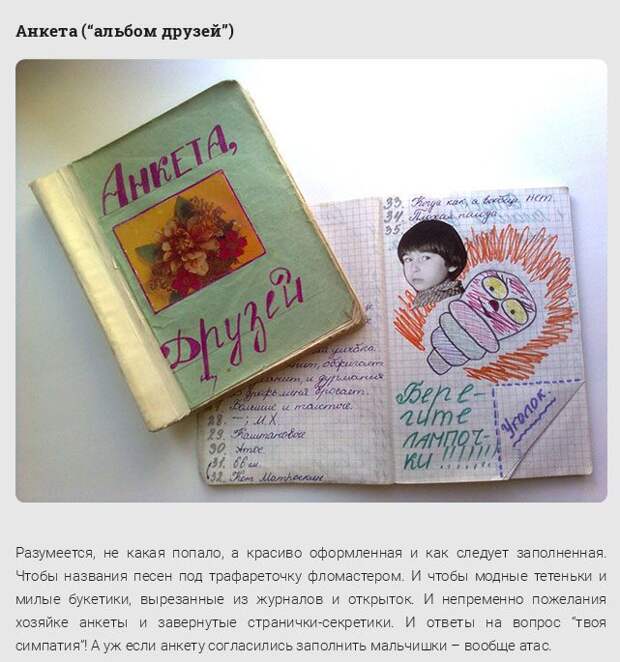 Анкета (“альбом друзей”)
АНКЕТА,
ДРУЗЕЙ
33. Когда как, а вообще нет.
34. Плохая погода.
35.
улыбка.
обжигает
и дурманит
бросает.
Большие и толстое.
28. —"—; М.Х.
29. Каштановое
30.
31.
32. Кот Матроскин
Бере-
гите
лампоч-
ки !!!!!!!
Уголок
Разумеется, не какая попало, а красиво оформленная и как следует заполненная.
Чтобы названия песен под трафареточку фломастером. И чтобы модные тетеньки и
милые букетики, вырезанные из журналов и открыток. И непременно пожелания
хозяйке анкеты и завернутые странички-секретики. И ответы на вопрос “твоя
симпатия”! А уж если анкету согласились заполнить мальчишки – вообще атас.